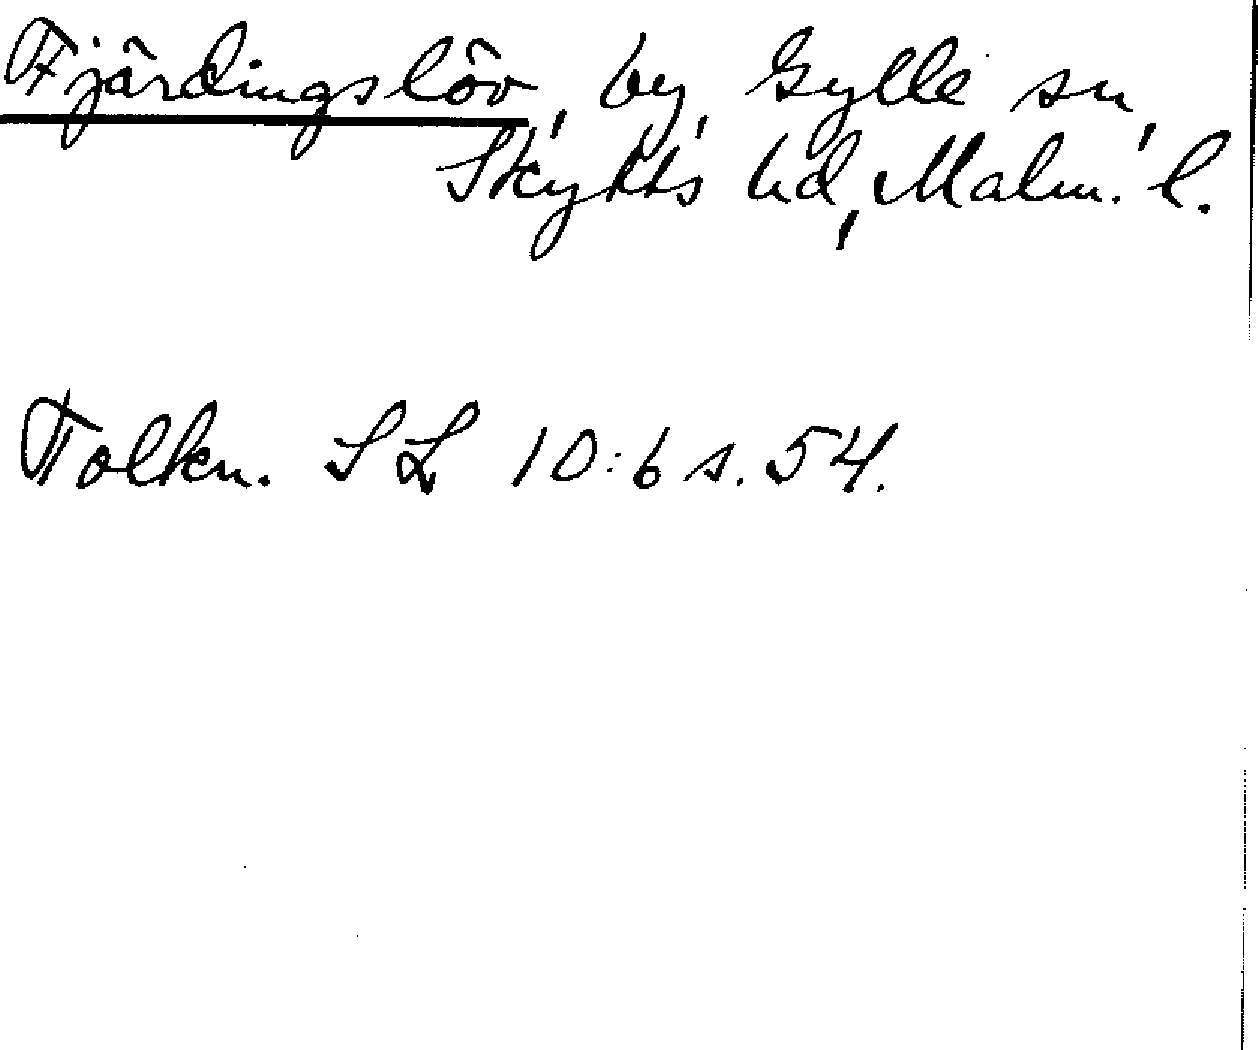 Fjärdingslöv, by, Gylle sn,
Skytts hd, Malm. l.
Tolkn. SL 10:6 s. 54.